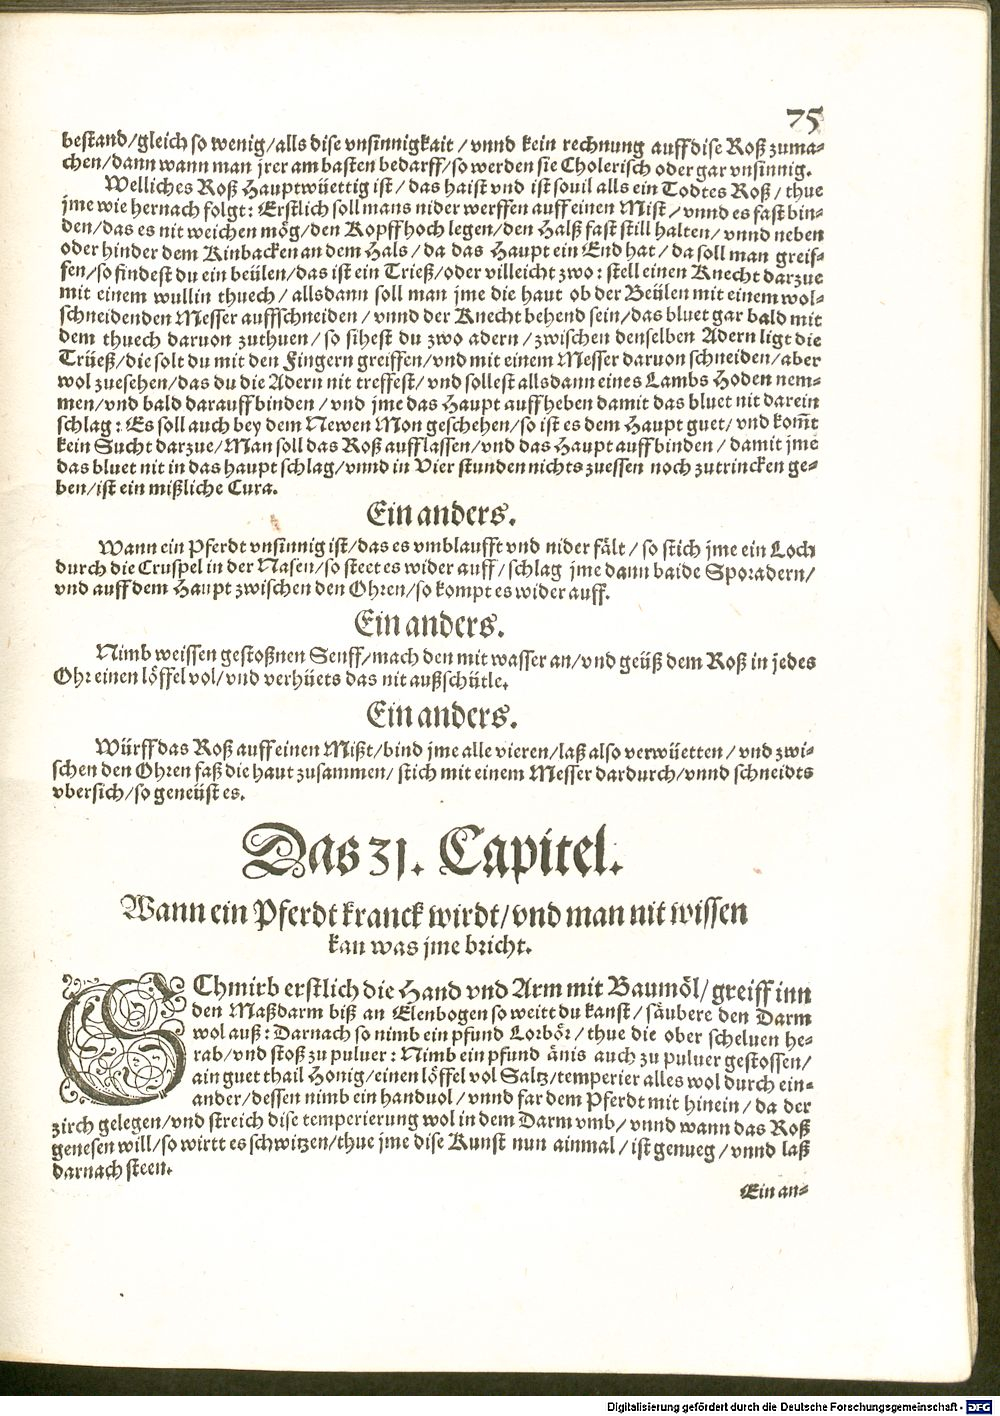 75
bestand/gleich so wenig/alls dise vnsinnigkait/vnnd kein rechnung auff dise Roß zuma⸗
chen/dann wann man jrer am basten bedarff/so werden sie Cholerisch oder gar vnsinnig.
Welliches Roß Hauptwüettig ist/das haist vnd ist souil alls ein Todtes Roß/thue
jme wie hernach folgt: Erstlich soll mans nider werffen auff einen Mist/vnnd es fast bin⸗
den/das es nit weichen mög/den Kopff hoch legen/den Halß fast still halten/vnnd neben
oder hinder dem Kinbacken an dem Hals/da das Haupt ein End hat/da soll man greif⸗
fen/so findest du ein beülen/das ist ein Trieß/oder villeicht zwo: stell einen Knecht darzue
mit einem wullin thuech/allsdann soll man jme die haut ob der Beülen mit einem wol⸗
schneidenden Messer auffschneiden/vnnd der Knecht behend sein/das bluet gar bald mit
dem thuech daruon zuthuen/so sihest du zwo adern/zwischen denselben Adern ligt die
Trüeß/die solt du mit den Fingern greiffen/vnd mit einem Messer daruon schneiden/aber
wol zuesehen/das du die Adern nit treffest/vnd sollest allsdann eines Lambs Hoden nem⸗
men/vnd bald darauff binden/vnd jme das Haupt auffheben damit das bluet nit darein
schlag: Es soll auch bey dem Newen Mon geschehen/so ist es dem Haupt guet/vnd kom̃t
kein Sucht darzue/Man soll das Roß aufflassen/vnd das Haupt auffbinden/damit jme
das bluet nit in das haupt schlag/vnnd in Vier stunden nichts zuessen noch zutrincken ge⸗
ben/ist ein mißliche Cura.
Ein anders.
Wann ein Pferdt vnsinnig ist/das es vmblaufft vnd nider fält/so stich jme ein Loch
durch die Cruspel in der Nasen/so steet es wider auff/schlag jme dann baide Sporadern/
vnd auff dem Haupt zwischen den Ohren/so kompt es wider auff.
Ein anders.
Nimb weissen gestoßnen Senff/mach den mit wasser an/vnd geüß dem Roß in jedes
Ohr einen löffel vol/vnd verhüets das nit außschütle.
Ein anders.
Würff das Roß auff einen Mißt/bind jme alle vieren/laß also verwüetten/vnd zwi⸗
schen den Ohren faß die haut zusammen/stich mit einem Messer dardurch/vnnd schneidts
vbersich/so geneüst es.
Das 31. Capitel.
Wann ein Pferdt kranck wirdt/vnd man nit wissen
kan was jme bricht.
SChmirb erstlich die Hand vnd Arm mit Baumöl/greiff inn
den Maßdarm biß an Elenbogen so weitt du kanst/säubere den Darm
wol auß: Darnach so nimb ein pfund Lorbör/thue die ober scheluen he⸗
rab/vnd stoß zu puluer: Nimb ein pfund änis auch zu puluer gestossen/
ain guet thail Honig/einen löffel vol Saltz/temperier alles wol durch ein⸗
ander/dessen nimb ein handuol/vnnd far dem Pferdt mit hinein/da der
zirch gelegen/vnd streich dise temperierung wol in dem Darm vmb/vnnd wann das Roß
genesen will/so wirtt es schwitzen/thue jme dise Kunst nun ainmal/ist genueg/vnnd laß
darnach steen.
Ein an⸗
Digitalisierung gefördert durch die Deutsche Forschungsgemeinschaft - DFG